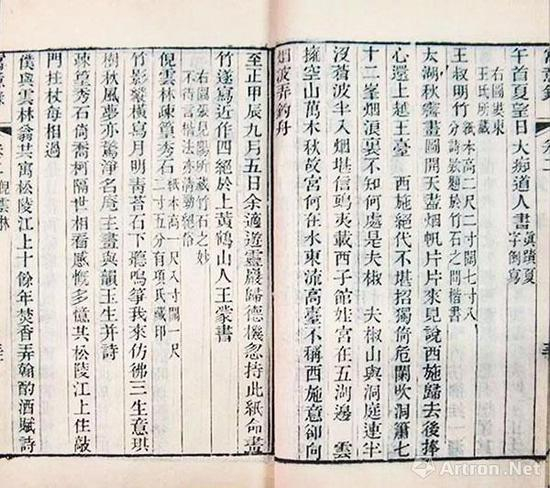 午首夏望日大痴道人書 眞蹟夏
字倒寫
右圖婁東
王氏所藏
王叔明竹 紙本高二尺二寸闊七寸八
分詩款題於竹石之間楷書
太湖秋霽畫圖開天盡烟帆片片來見說西施歸去後捧
心還上越王臺 西施絕代不堪招獨倚危闌吹洞簫七
十二峯烟裏不知何處是夫椒 夫椒山與洞庭連半
沒蒼波半入烟堪信鴟夷載西子館娃宮在五湖邊 雲
擁空山萬木秋故宮何在水東流高臺不稱西施意卻向
烟波弄釣舟
至正甲辰九月五日余適遊靈巖歸德機忽持此紙命畫
竹遂寫近作四絕於上黃鶴山人王蒙書
右圖張見陽所藏竹石之妙
不待言楷法亦清勁絕俗
倪雲林疎篁秀石 紙本高一尺八寸闊一尺
二寸五分有項氏藏印
竹影縱橫寫月明靑苔石下聽鳴箏我來仿彿三生意琪
樹秋風夢亦驚淨名庵主畫與韻玉生并詩
疎篁秀石倚喬柯隔世相看感慨多憶共松陵江上住敲
門拄杖每相過
僕與雲林翁共寓松陵江上十餘年焚香弄翰酌酒賦詩
卷二 倪雲林
Artron.Net